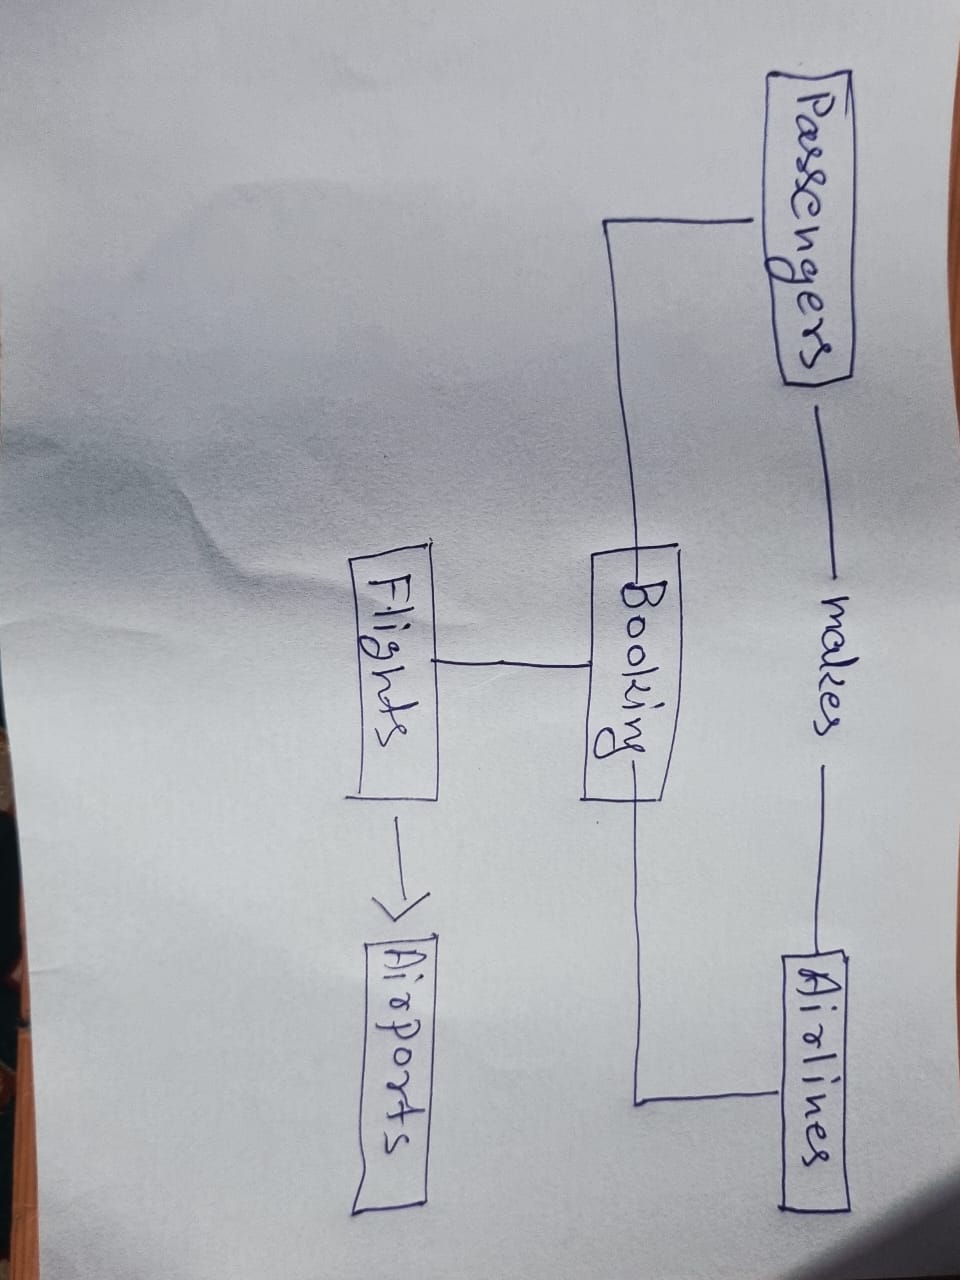 Passengers makes Airlines
Booking
Flights Airports